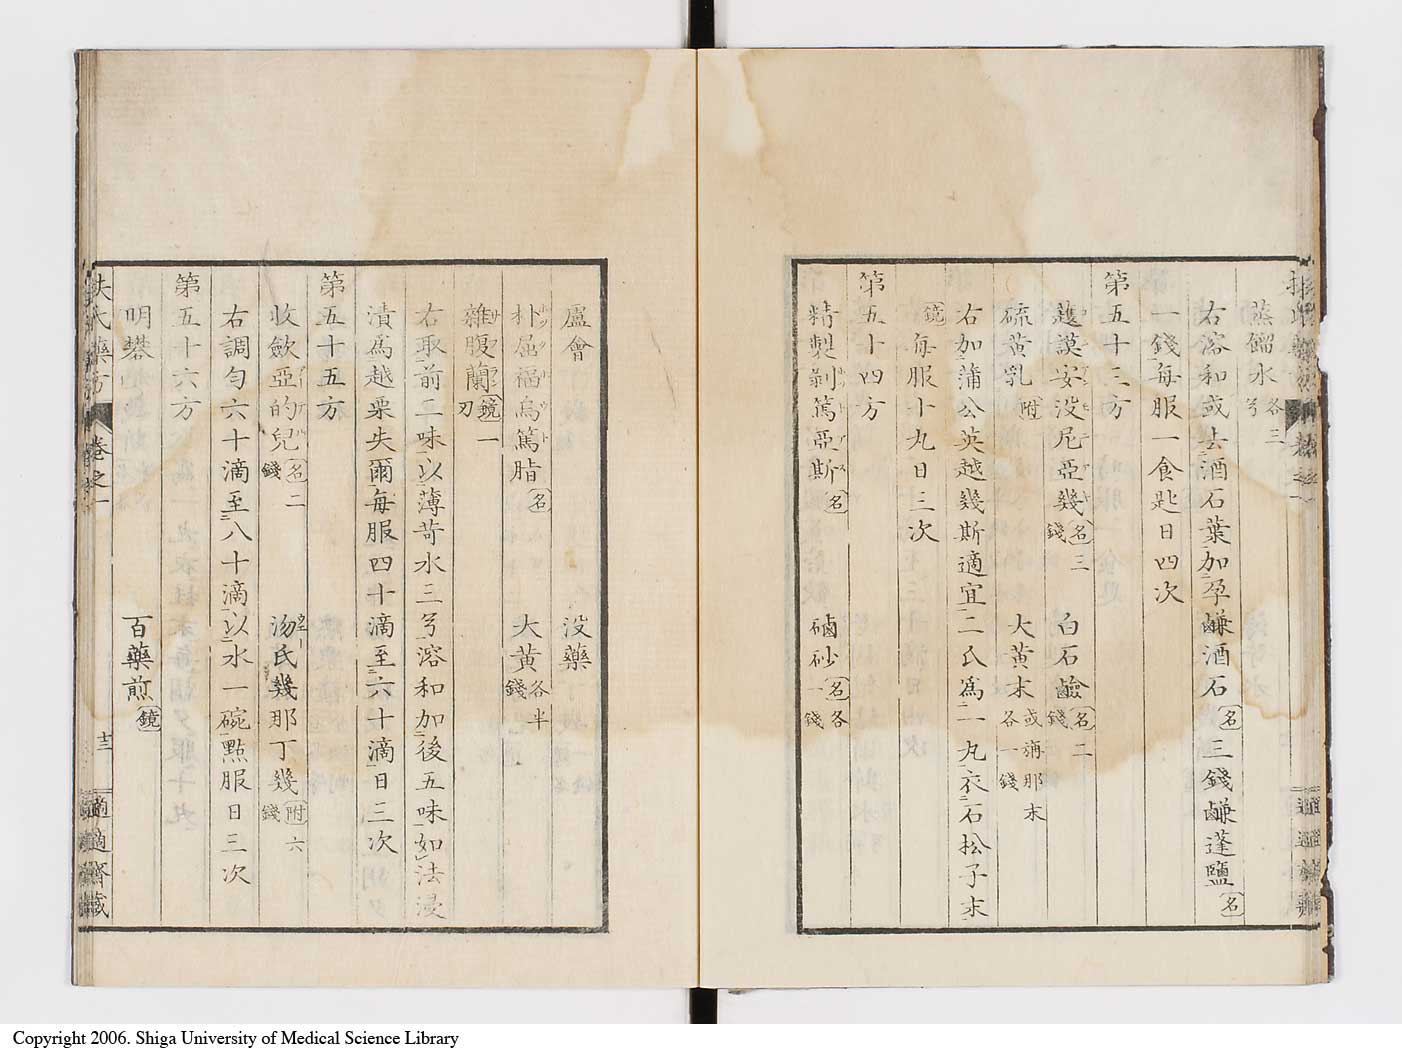 蒸餾水 各三兮
右溶和或去酒石葉加孕鹻酒石名三錢鹻蓬鹽名
一錢每服一食匙日四次
第五十三方
護謨安没尼亞幾名三錢 白石鹼名二錢
硫黃乳附 大黃末或蒳那末各一錢
右加蒲公英越幾斯適宜二氏為一丸衣石松子末
鏡每服十九日三次
第五十四方
精製剝篤亞斯名 磠砂名各一錢
蘆會 没藥
朴屈福烏篤脂名 大黃各半錢
雜腹蘭鏡一刃
右取前二味以薄荷水三兮溶和加後五味如法浸
漬為越栗失爾每服四十滴至六十滴日三次
第五十五方
收斂亞的兒名二錢 汤氏幾那丁幾附六錢
右調勻六十滴至八十滴以水一碗點服日三次
第五十六方
明礬 百藥煎鏡
扶氏藥方 卷之一 十三 適適齋藏
Copyright 2006. Shiga University of Medical Science Library